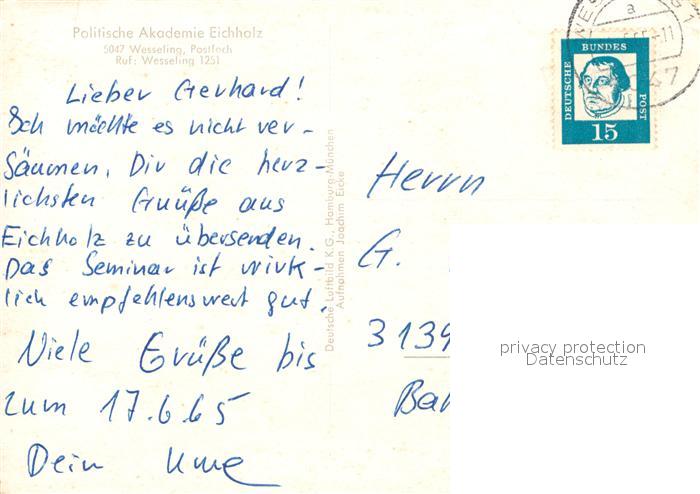 Politische Akademie Eichholz
5047 Wesseling, Postfach
Ruf: Wesseling 1251
Lieber Gerhard!
Ich möchte es nicht ver-
säumen, Dir die herz-
lichsten Grüße aus
Eichholz zu übersenden.
Das Seminar ist wirk-
lich empfehlenswert gut.
Viele Grüße bis
zum 17.6.65
Dein Uwe
Deutsche Luftbild K.G., Hamburg-München
Aufnahmen Joachim Eicke
DEUTSCHE
BUNDES
POST
15
a
Herrn
G.
3139
Bar
privacy protection
Datenschutz